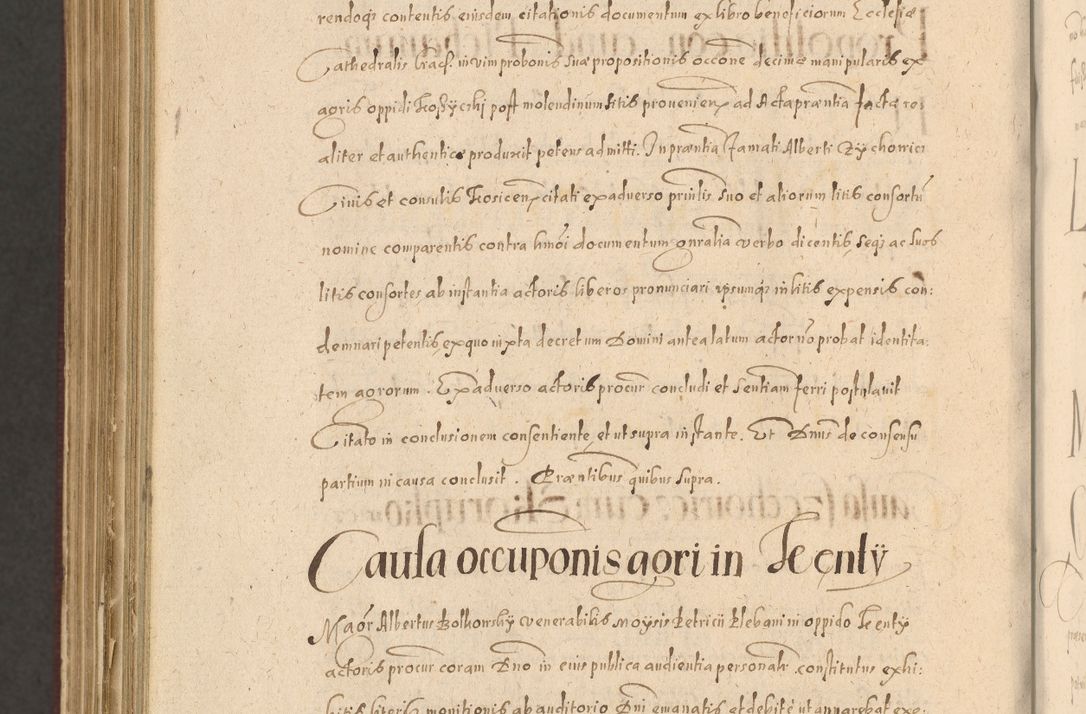 rendoq; contentis eiusdem citationis documentum ex libro beneficiorum Ecclesiæ
Cathedralis Crac̃. in vim probonis suæ propositionis occone decimæ manipularis ex
agris oppidi post molendinum sitis provenien ad Acta præntia factæ re
aliter et authentice produxit petens admitti. In præntia famati Alberti Zychowicz
Civis et consulis citati ex adverso prinlis suo et aliorum litis consortũ
nomine comparentis contra hmõi documentum gnralia verbo dicentis, seq; ac suos
litis consortes ab instantia actoris liberos pronunciari ipsumq; in litis expensis con:
demnari petentis ex quo iuxta decretum Domini antea latum actor nõ probat identita:
tem agrorum. Ex adverso actoris procur concludi et sentiam ferri postulavit
Citato in conclusionem consentiente, et ut supra instante. Et Dnus de consensu
partium in causa conclusit. Præntibus quibus supra.
Causa occuponis agri in Tęcnſÿ
Magr̃ Albertus Bolkowskÿ venerabilis Moysis Petricii Plebani in oppido
actoris procur coram Dno in eius publica audientia personalr constitutus exhi:
bitis literis monitionis ab auditorio Dni emanatis et debite ut apparebat exe: